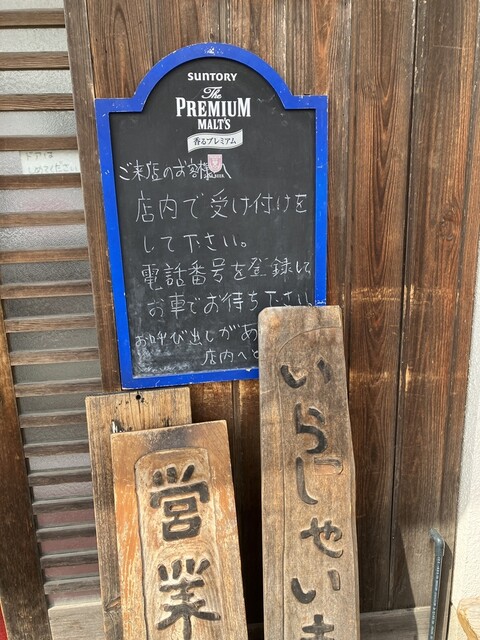 SUNTORY
The
PREMIUM
MALT'S
香るプレミアム
ご来店のお客様へ
店内で受け付けを
して下さい。
電話番号を登録して
お車でお待ち下さい。
お呼び出しがあ
店内へと
いらしゃいま
営業